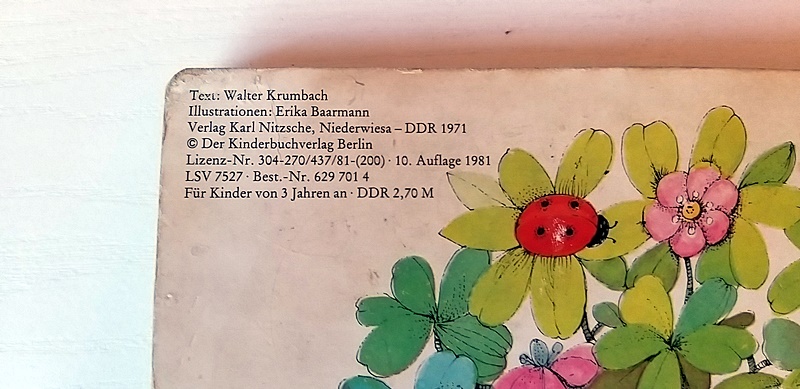 Text: Walter Krumbach
Illustrationen: Erika Baarmann
Verlag Karl Nitzsche, Niederwiesa – DDR 1971
© Der Kinderbuchverlag Berlin
Lizenz-Nr. 304-270/437/81-(200) · 10. Auflage 1981
LSV 7527 · Best.-Nr. 629 701 4
Für Kinder von 3 Jahren an · DDR 2,70 M